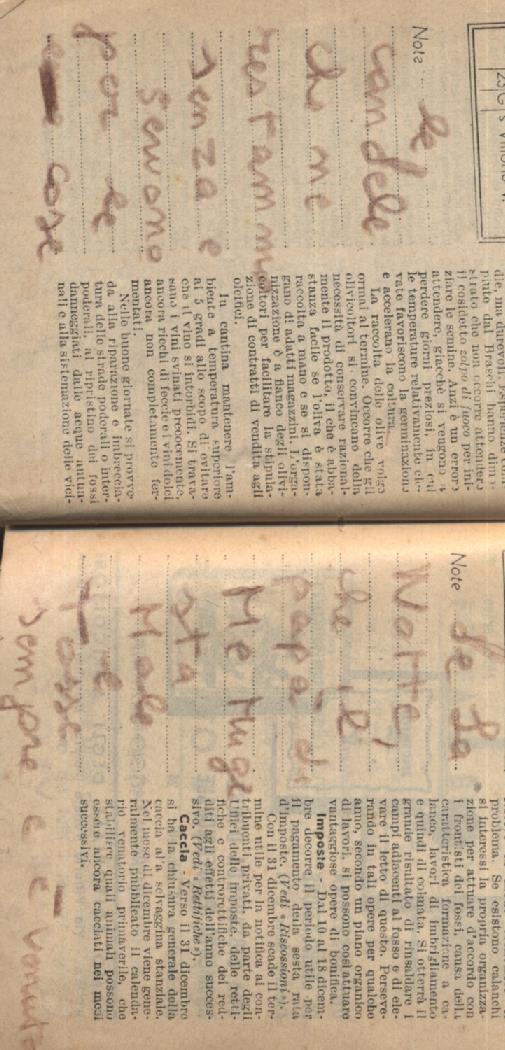 Note
le
candele
che ne
restammo
senza e
servono
per le
cose
die, ma durevoli,
strato che non occorre attendere
il cosidetto colpo di fuoco per ini-
ziare le semine. Anzi è un errore
attendere, giacchè si vengono a
perdere giorni preziosi, in cui
le temperature relativamente ele-
vate favoriscono la germinazione
e accelerano la coltura.
La raccolta delle olive volge
ormai al termine. Occorre che gli
olivicoltori si convincano della
necessità di conservare razional-
mente il prodotto, il che è abba-
stanza facile se l'oliva è stata
raccolta a mano e se si dispon-
gano di adatti magazzini. L'orga-
nizzazione è a fianco degli olivi-
coltori per facilitare la stipula-
zione di contratti di vendita agli
oleifici.
In cantina mantenere l'am-
biente a temperatura superiore
ai 5 gradi allo scopo di evitare
che il vino si intorbidi. Si trava-
sano i vini svinati precocemente,
ancora ricchi di feccie e i vini dolci
ancora non completamente fer-
mentati.
Nelle buone giornate si provve-
da alla riparazione e imbreccia-
tura delle strade poderali o inter-
poderali, al ripristino dei fossi
danneggiati dalle acque autun-
nali e alla sistemazione delle vici-
Note
Se la
Notte,
che il
papà di
Me Luge
sta
Male
e
Tosse
sempre e
problema. Se esistono calanchi
si interessi la propria organizza-
zione per attuare d'accordo con
i frontisti dei fossi, causa della
caratteristica formazione a ca-
lanco, lavori di imbrigliamento
e quindi di colmata. Si otterrà il
grande risultato di rinsaldare i
campi adiacenti al fosso e di ele-
vare il letto di questo. Perseve-
rando in tali opere per qualche
anno, secondo un piano organico
di lavori, si possono così attuare
vantaggiose opere di bonifica.
Imposte - Dal 10 al 18 dicem-
bre decorre il periodo utile per
il pagamento della sesta rata
d'imposte. (Vedi « Riscossioni »).
Con il 31 dicembre scade il ter-
mine utile per la notifica ai con-
tribuenti privati, da parte degli
Uffici delle imposte, delle retti-
fiche e controrettifiche dei red-
diti agli effetti dell'anno succes-
sivo. (Vedi « Rettifiche »).
Caccia - Verso il 31 dicembre
si ha la chiusura generale della
caccia alla selvaggina stanziale.
Nel mese di dicembre viene gene-
ralmente pubblicato il calenda-
rio venatorio primaverile, che
stabilisce quali animali possono
essere ancora cacciati nei mesi
successivi.